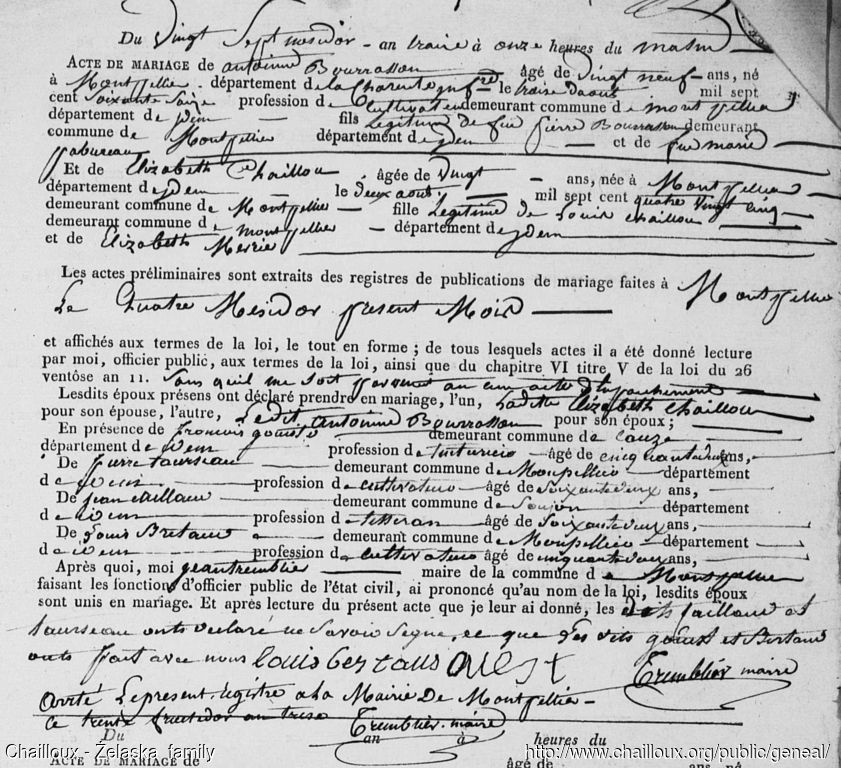 Du Vingt Sept mesidor - an traize à onze heures du matin
ACTE DE MARIAGE de antoinne Bourrasson âgé de Vingt neuf ans, né
à Montpellier département de la Charente infre le traize daout mil sept
cent Soixante Saize profession de Cultivateur demeurant commune de montpellier
département de ydem fils Legitime de feu pierre Bourrasson demeurant
commune de Montpellier département de ydem et de feue marie
Et de Elizabeth Chaillou âgée de Vingt ans, née à Montpellier
département de ydem le deux aout mil sept cent quatre vingt cinq
demeurant commune de Montpellier fille Legitime de Louis chaillou
demeurant commune de montpellier département de ydem
et de Elizabeth
Les actes préliminaires sont extraits des registres de publications de mariage faites à Montpellier
Le Quatre Mesidor present Mois
et affichés aux termes de la loi, le tout en forme ; de tous lesquels actes il a été donné lecture
par moi, officier public, aux termes de la loi, ainsi que du chapitre VI titre V de la loi du 26
ventôse an 11. Sans quil me soit parvenu aucun acte dempechement
Lesdits époux présens ont déclaré prendre en mariage, l'un, Laditte Elizabeth Chaillou
pour son épouse, l'autre, Ledit antoinne Bourrasson pour son époux ;
En présence de francois demeurant commune de
département de idem profession de âgé de cinquante deux ans,
De pierre taurseau demeurant commune de Monpellier département
de idem profession de cultivateur âgé de Soixante deux ans,
De jean caillaud demeurant commune de Saujon département
de idem profession de âgé de Soixante deux ans,
De Louis Bretaud demeurant commune de Monpellier département
de idem profession de cultivateur âgé de cinquante deux ans,
Après quoi, moi jean tremblier maire de la commune de Montpellier
faisant les fonctions d'officier public de l'état civil, ai prononcé qu'au nom de la loi, lesdits époux
sont unis en mariage. Et après lecture du présent acte que je leur ai donné, les dits jaillaud et
taurseau onts declaré ne Savoir Signe, ce que les dits et Bertaud
onts fait avec nous louis bertaus Tremblier maire
arrêté Le present registre a la Mairie De Montpellier
ce trente fructidor an treize Tremblier maire
Du an à heures du
ACTE DE MARIAGE de âgé de ans, né
Chailloux - Zelaska family
http://www.chailloux.org/public/geneal/